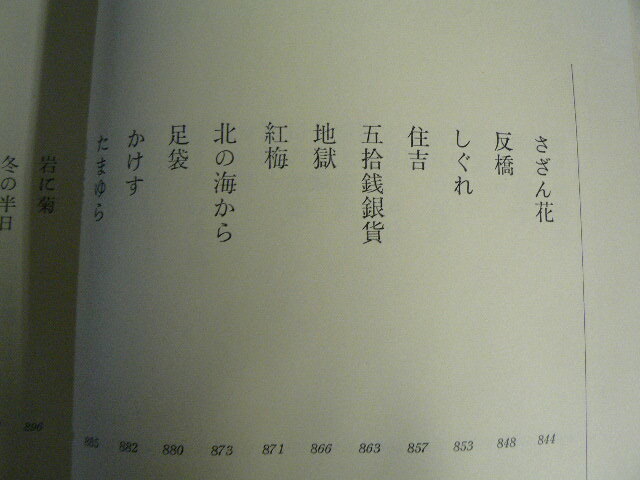 さざん花 844
反橋 848
しぐれ 853
住吉 857
五拾銭銀貨 863
地獄 866
紅梅 871
北の海から 873
足袋 880
かけす 882
たまゆら 885
岩に菊 896
冬の半日